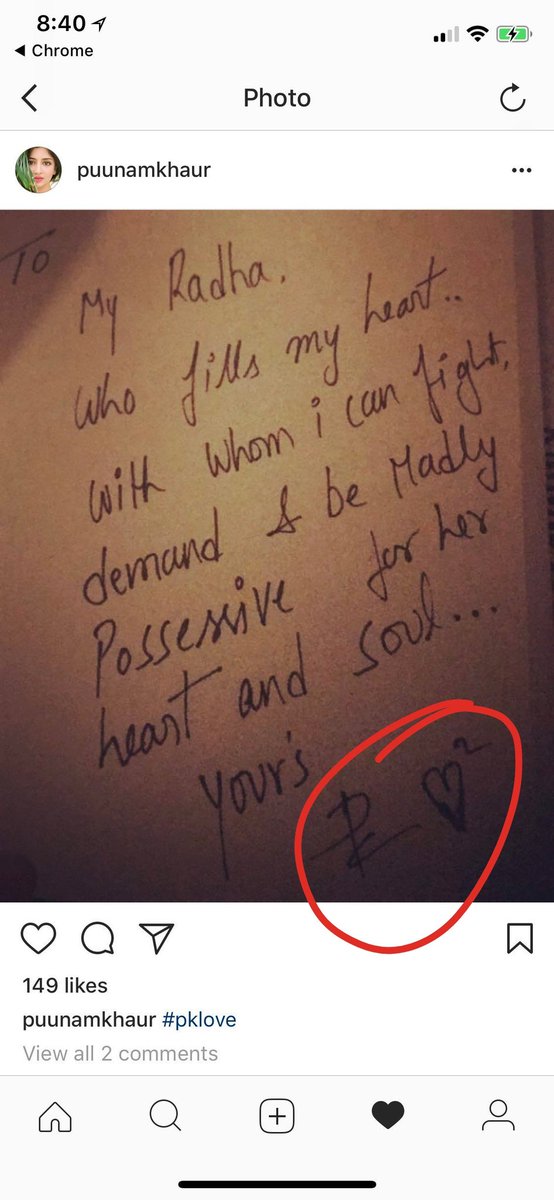 8:40
Chrome
Photo
puunamkhaur
To
My Radha.
Who fills my heart..
with whom i can fight,
demand & be Madly
Possessive for her
heart and soul...
your's
2
149 likes
puunamkhaur #pklove
View all 2 comments